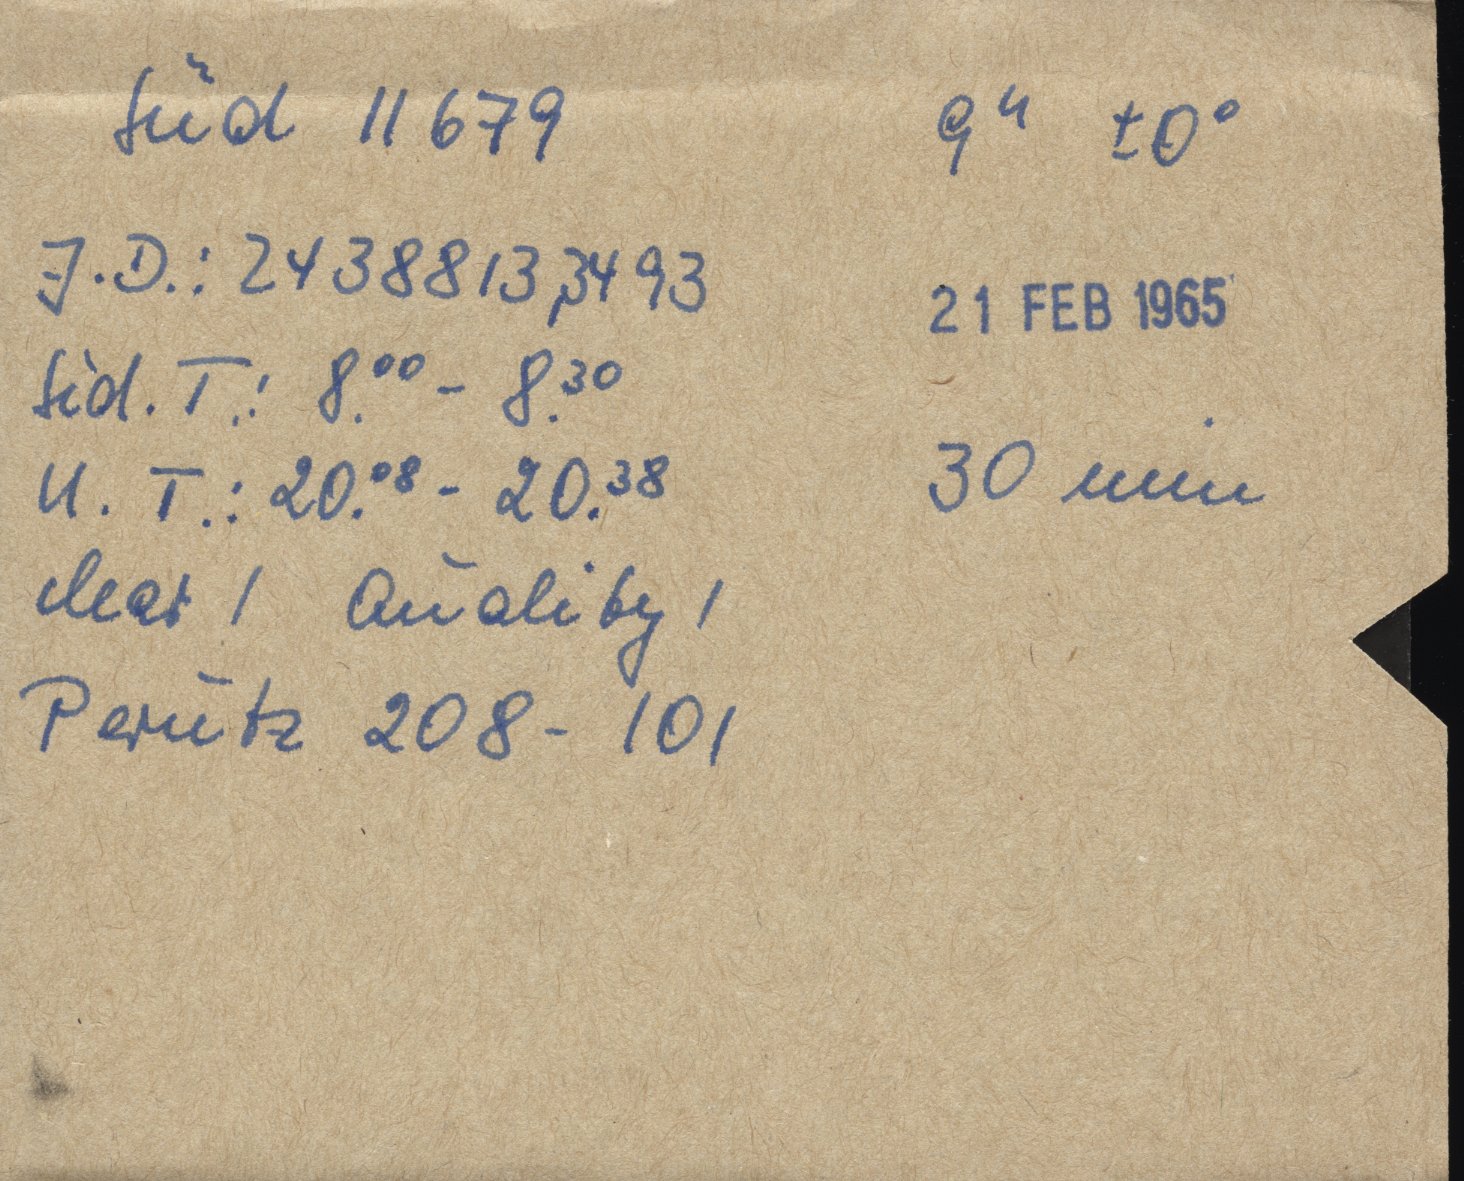 Süd 11679 9ʰ ±0°
J.D.: 2438813,3493 21 FEB 1965
Sid. T.: 8.⁰⁰ - 8.³⁰
U. T.: 20.⁰⁸ - 20.³⁸ 30 min
clear 1 Quality 1
Perutz 208-101